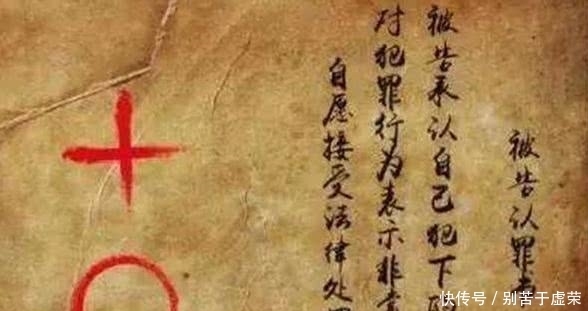 被告认罪书
被告承认自己犯下的
对犯罪行为表示非常
自愿接受法律处
快传号／别苦于虚荣